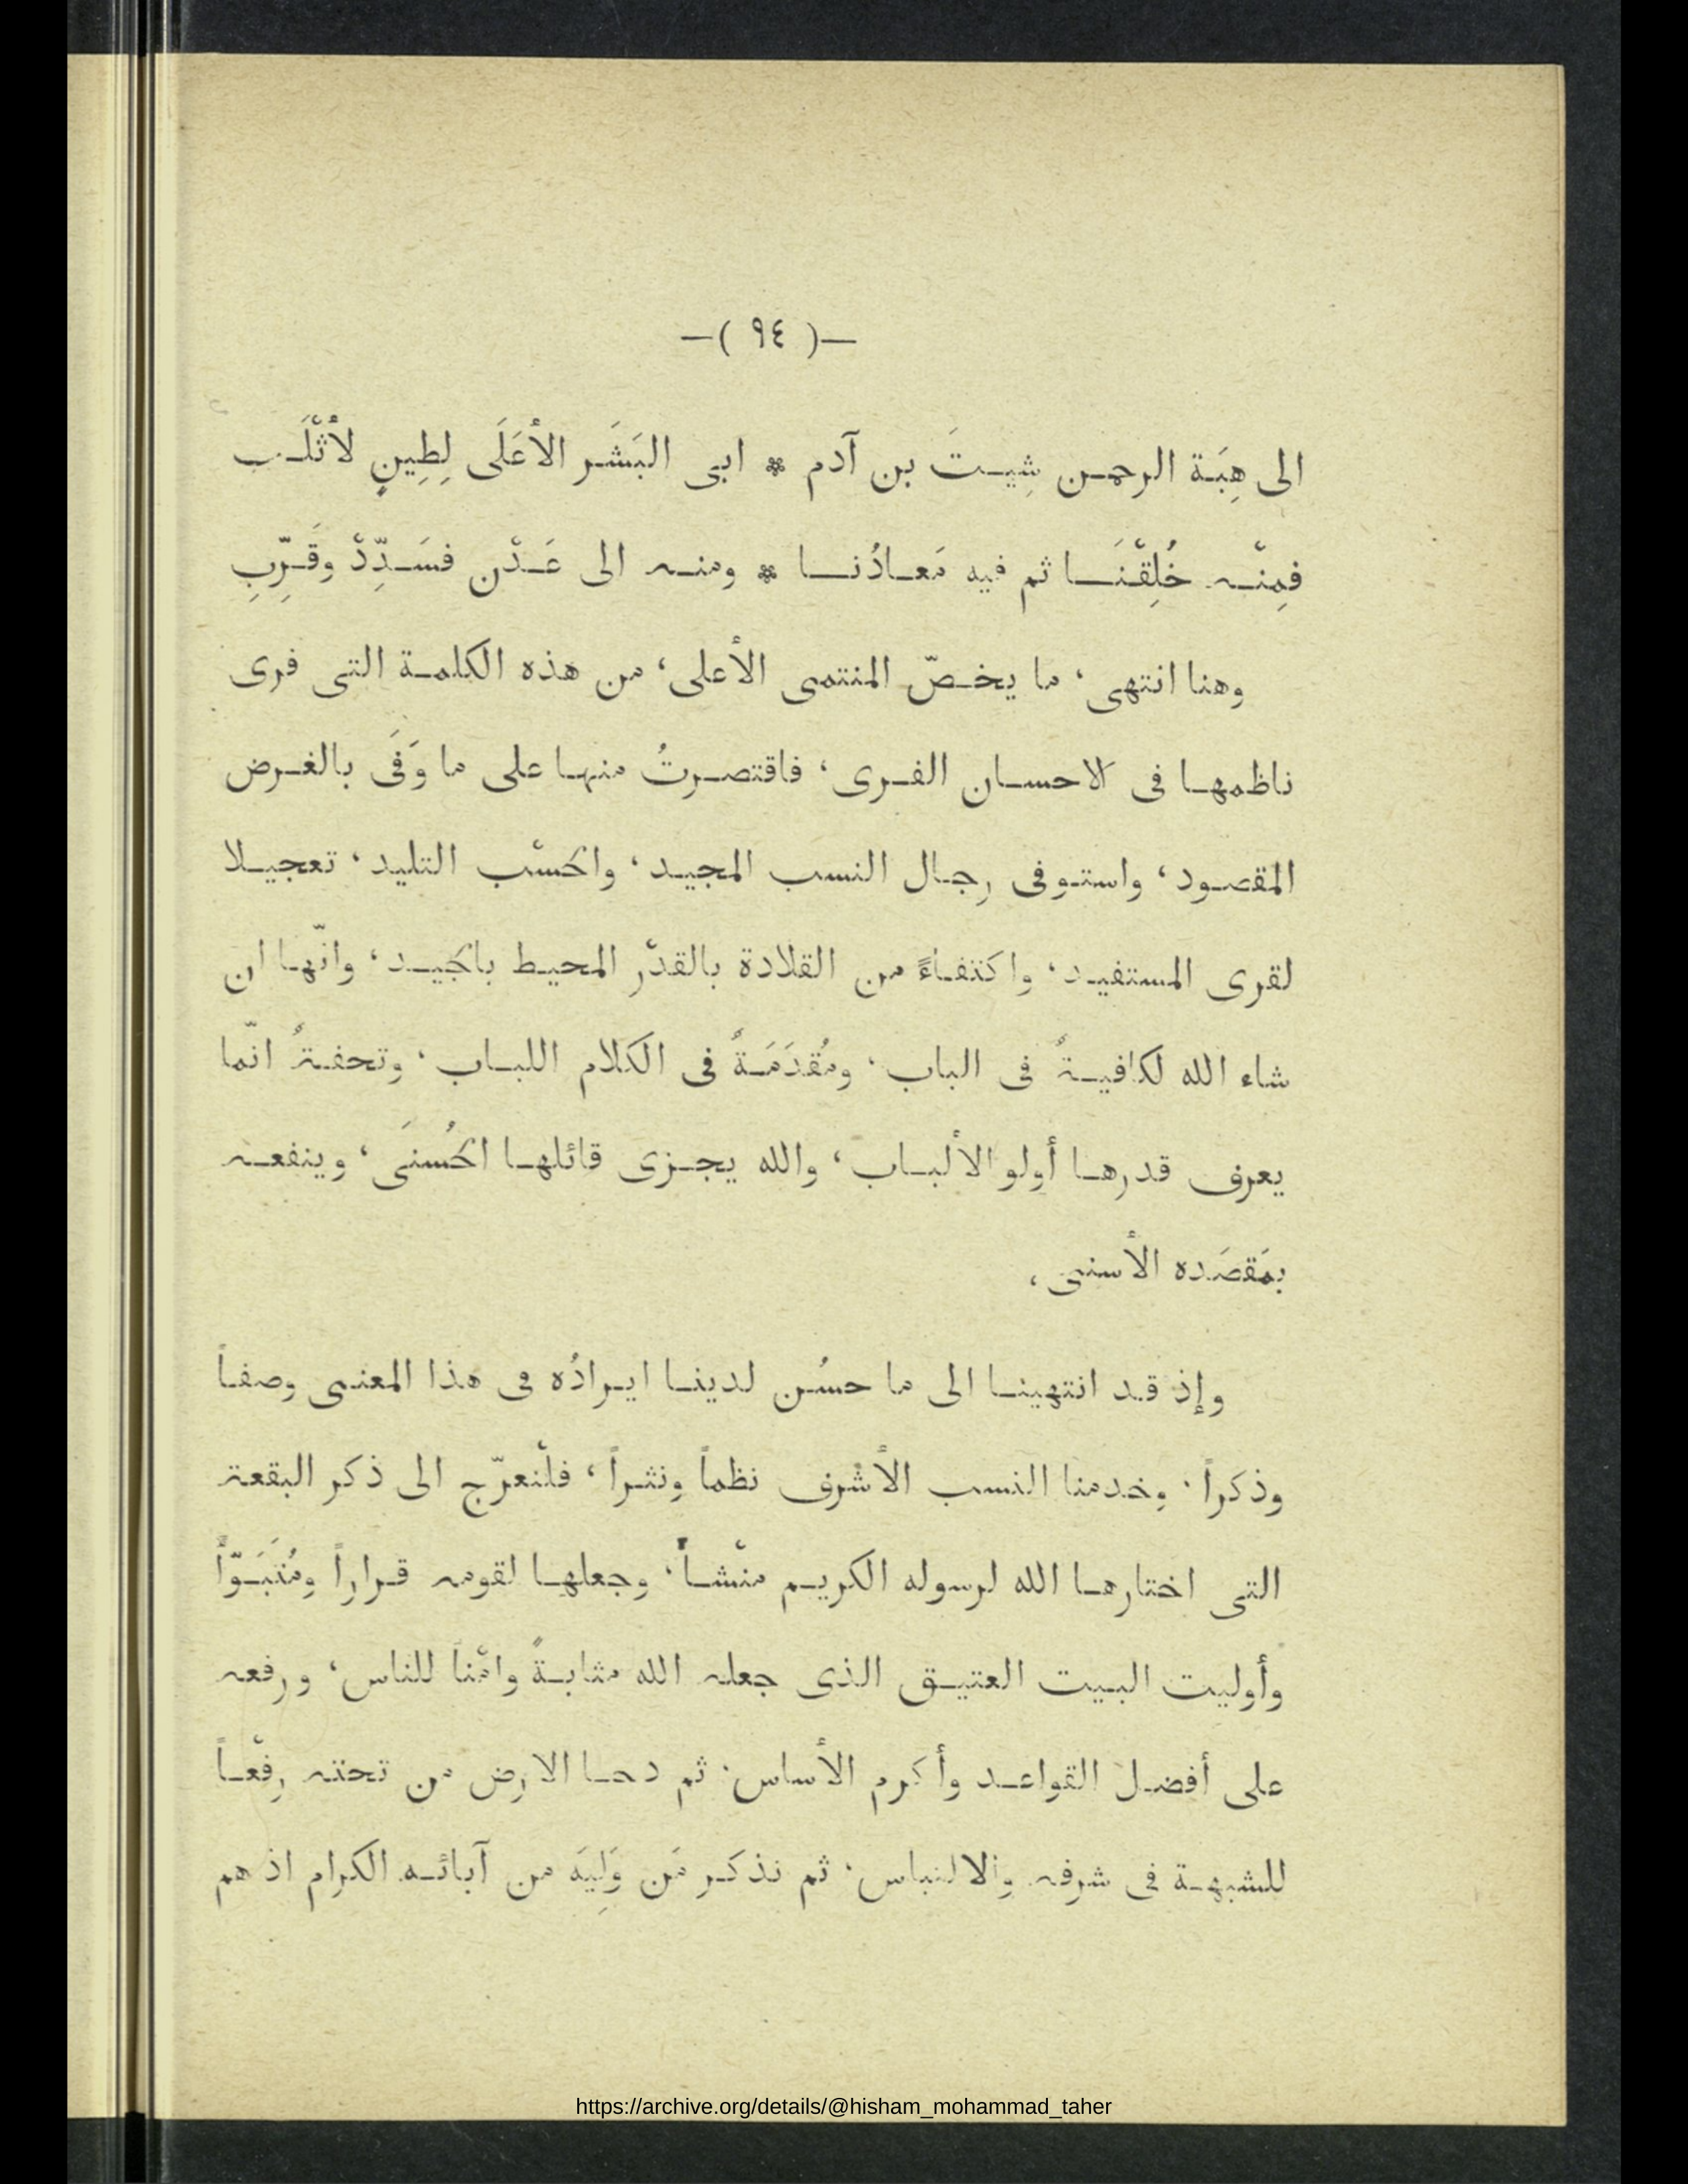 —( ٩٤ )—
الى هِبَة الرحمن شِيتَ بن آدم * ابى البَشَر الأعَلَى لِطِينٍ لأثْلَب
فمِنْه خُلِقْنَا ثم فيه مَعادُنا * ومنه الى عَدْن فسَدِّدْ وقَرِّبِ
وهنا انتهى، ما يخصّ المنتمى الأعلى، من هذه الكلمة التى فرى
ناظمها فى الاحسان الفرى، فاقتصرتُ منها على ما وَفَى بالغرض
المقصود، واستوفى رجال النسب المجيد، والحسْب التليد، تعجيلا
لقرى المستفيد، واكتفاءً من القلادة بالقدْر المحيط بالجيد، وانّها ان
شاء الله لكافيةٌ فى الباب، ومُقدَمَةٌ فى الكلام اللباب، وتحفةٌ انّما
يعرف قدرها أولو الألباب، والله يجزى قائلها الحُسنَى، وينفعه
بمَقصَده الأسنى،
وإذ قد انتهينا الى ما حسُن لدينا ايرادُه فى هذا المعنى وصفاً
وذكراً، وخدمنا النسب الأشرف نظماً ونثراً، فلْنعرّج الى ذكر البقعة
التى اختارها الله لرسوله الكريم منْشأ، وجعلها لقومه قراراً ومُتَبَوّأً
وأوليت البيت العتيق الذى جعله الله مثابةً وامْناً للناس، ورفعه
على أفضل القواعد وأكرم الأساس، ثم دحا الارض من تحته رفْعاً
للشبهة فى شرفه والالتباس، ثم نذكر مَن وَلِيَه من آبائه الكرام اذ هم
https://archive.org/details/@hisham_mohammad_taher